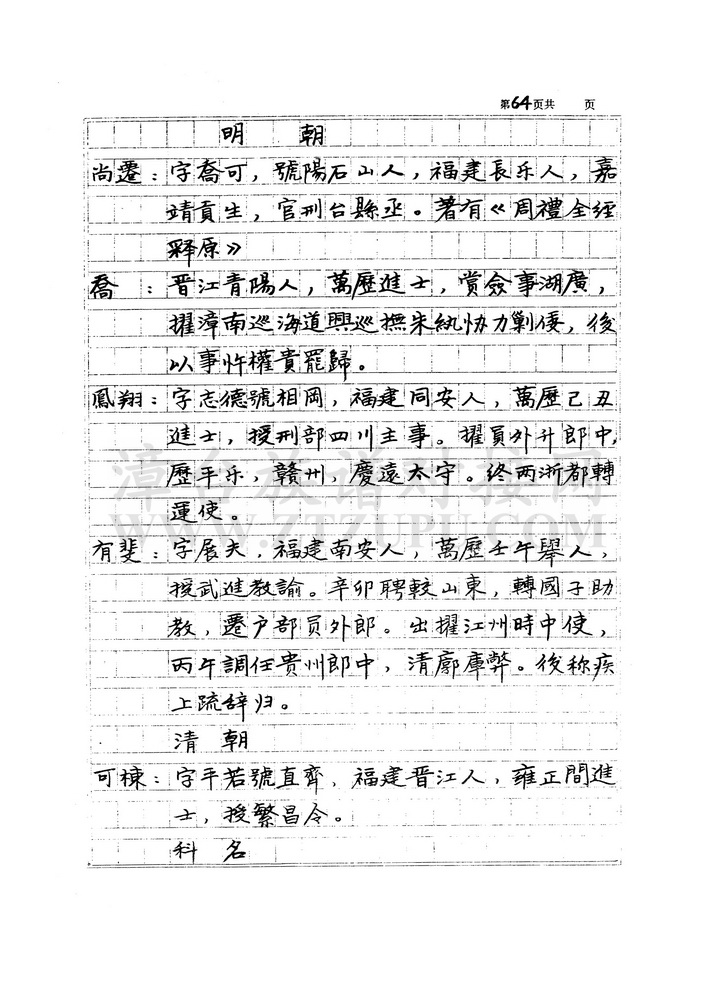 第64页共 页
明 朝
尚遷：字喬可，號陽石山人，福建長乐人，嘉
靖貢生，官刑台縣丞。著有《周禮全經
释原》
喬：晋江青陽人，萬歷進士，賞僉事湖廣，
擢漳南巡海道興巡撫朱紈协力剿倭，後
以事忤權貴罷歸。
鳳翔：字志德號相岡，福建同安人，萬歷己丑
進士，授刑部四川主事。擢員外升郎中，
歷平乐，贛州，慶遠太守。终两浙都轉
運使。
有斐：字展夫，福建南安人，萬歷壬午舉人，
授武進教諭。辛卯聘較山東，轉國子助
教，遷户部員外郎。出擢江州時中使，
丙午調任貴州郎中，清廓庫弊。後称疾
上疏辞归。
清 朝
可棟：字平若號直齊，福建晋江人，雍正間進
士，授繁昌令。
科 名
漳台族谱对接网
WWW.ZTZUPU.COM